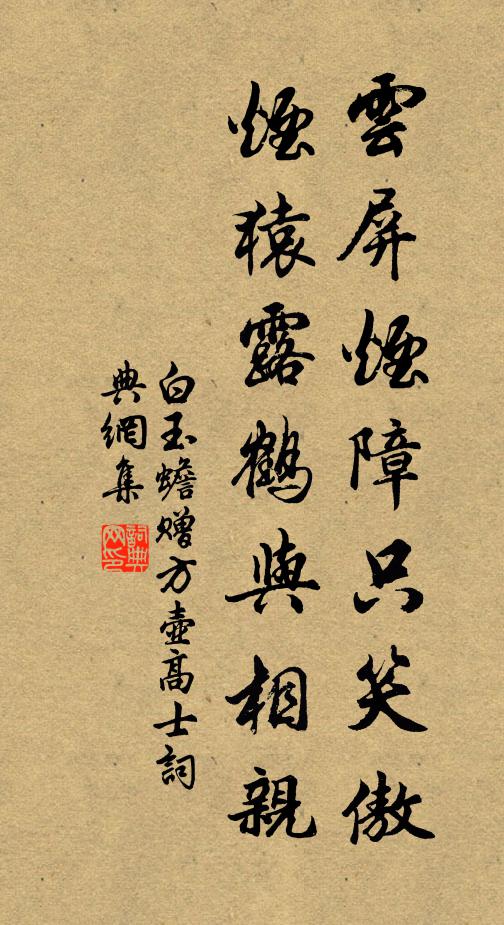 雲屏煙障只笑傲
煙猿露鶴與相親
白玉蟾贈方壺高士詞
典網集
詞典網印